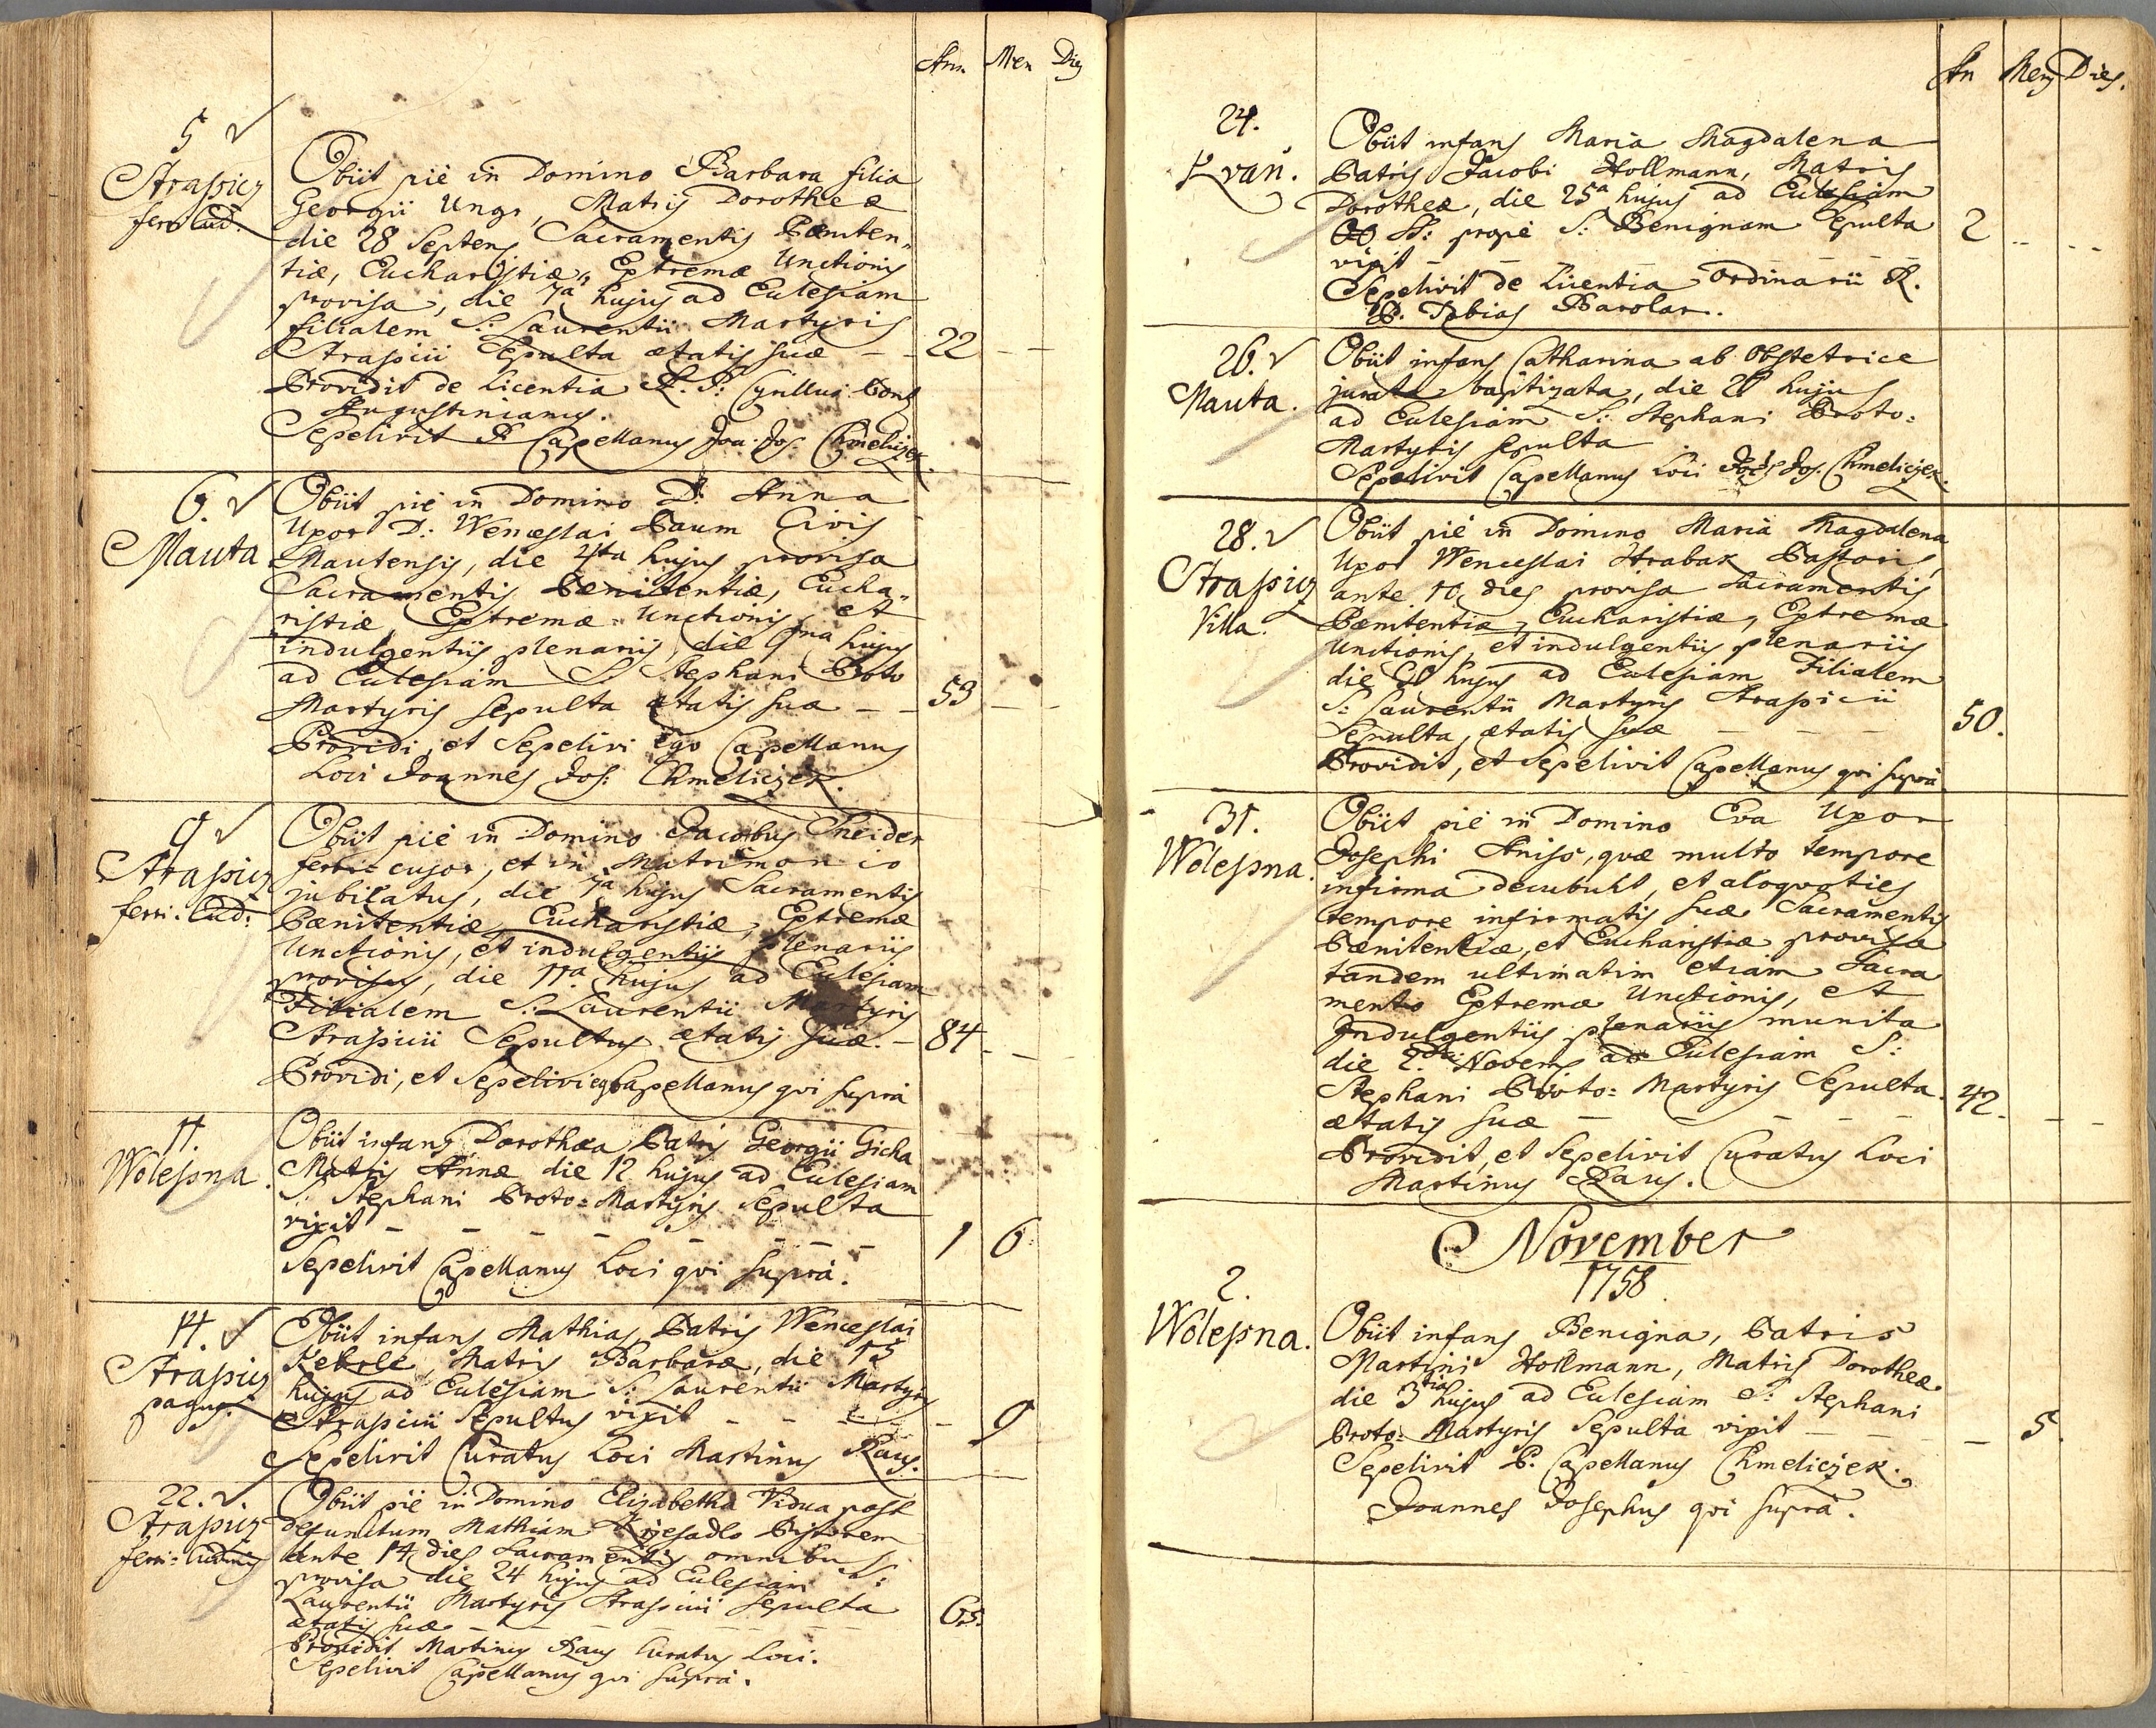 Ann Men Dies
5
Strassicz
ferri Cud:
Obiit piè in Domino Barbara filia
Georgii Ungr, Matris Dorotheæ
die 28 Septembris Sacramentis Pœniten„
tiæ, Eucharistiæ, Extremæ Unctionis
provisa, die 7a hujus ad Ecclesiam
filialem S: Laurentii Martyris
Strassicii Sepulta ætatis suæ – – 22 – –
Providit de Licentia R. P:
Augustinianus.
Sepelivit P Capellanus Joa: Jos: Chmeliczek.
6.
Mauta
Obiit piè in Domino D: Anna
Uxor D: Wenceslai Baum Civis
Mautensis, die 4ta hujus provisa
Sacramentis Pœnitentiæ, Eucha„
ristiæ, Extremæ Unctionis, et
indulgentiis plenariis, die hujus
ad Ecclesiam S: Stephani Proto
Martyris sepulta ætatis suæ – – 53 – –
Providi, et Sepelivi ego Capellanus
Loci Joannes Jos: Chmeliczek.
9
Strassicz
ferri: Cud:
Obiit piè in Domino Jacobus Sneider
ferri cusor, et in Matrimonio
jubilatus, die 7a hujus Sacramentis
Pœnitentiæ, Eucharistiæ, Extremæ
Unctionis, et indulgentiis plenariis
provisus, die 11a hujus ad Ecclesiam
Filialem S: Laurentii Martyris
Strassicii Sepultus ætatis suæ. – 84 – –
Providi, et Sepelivi ego Capellanus qvi suprà
11.
Wolessna.
Obiit infans Dorothæa Patris Georgii Gicha
Matris Annæ die 12 hujus ad Ecclesiam
S: Stephani Proto=Martyris Sepulta
vixit – – – – – – – 1 6
Sepelivit Capellanus Loci qvi suprà.
14.
Strassicz
pagus.
Obiit infans Mathias Patris Wenceslai
Keberle, Matris Barbaræ, die 15
hujus ad Ecclesiam S: Laurentii Martyris
Strassicii Sepultus vixit – – – – 9
Sepelivit Curatus Loci Martinus Raus.
22.
Strassicz
ferri=cudinis
Obiit piè in Domino Elisabetha Vidua post
defunctum Mathiam Krzesadlo Pistorem
ante 14 dies Sacramentis omnibus
provisa die 24 hujus ad Ecclesiam S:
Laurentii Martyris Strassicii Sepulta
ætatis suæ – – – – – – 65.
Providit Martinus Raus Curatus Loci.
Sepelivit Capellanus qvi suprà.
An Mens Dies.
24.
Kvan.
Obiit infans Maria Magdalena
Patris Jacobi Hollmann, Matris
Dorotheæ, die 25a hujus ad Ecclesiam
OO SS: propè S: Benignam Sepulta 2 – –
vixit – – – – – – –
Sepelivit de Licentia Ordinarii R.
P. Tobias Barolar.
26.
Mauta.
Obiit infans Catharina ab Obstetrice
jurata baptizata, die hujus
ad Ecclesiam S: Stephani Proto=
Martyris sepulta
Sepelivit Capellanus Loci Jos. Chmeliczek.
28.
Strassicz
Villa.
Obiit piè in Domino Maria Magdalena
Uxor Wenceslai Hrabak Pastoris,
ante 10 dies provisa Sacramentis
Pœnitentiæ, Eucharistiæ, Extremæ
Unctionis, et indulgentiis plenariis
die hujus ad Ecclesiam Filialem
S: Laurentii Martyris Strassicii
Sepulta, ætatis suæ – – – 50.
Providit, et Sepelivit Capellanus qvi suprà
31.
Wolessna.
Obiit piè in Domino Eva Uxor
Josephi Aniss, quæ multo tempore
infirma decubuit, et aloqvoties
tempore infirmatis suæ Sacramentis
Pœnitentiæ, et Eucharistiæ provisa
tandem ultimatim etiam Sacra
mento Extremæ Unctionis, et
Indulgentiis plenariis munita
die 2da Novembris ad Ecclesiam S:
Stephani Proto=Martyris Sepulta. 42. – –
ætatis suæ – – – – –
Providit, et Sepelivit Curatus Loci
Martinus Raus.
November
1758
2.
Wolessna.
Obiit infans Benigna, Patris
Martini Hollmann, Matris Dorotheæ
die 3tia hujus ad Ecclesiam S: Stephani
Proto=Martyris Sepulta vixit – – – 5.
Sepelivit P. Capellanus Chmeliczek.
Joannes Josephus qvi suprà.